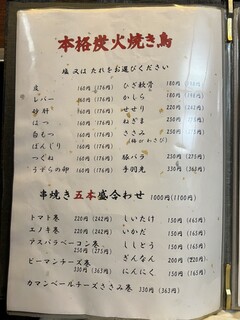 本格炭火焼き鳥
塩 又は たれをお選びください
皮 160円(176円) ひざ軟骨 180円
レバー 160円(176円) かしら 180円
砂肝 160円(176円) せせり 220円(242円)
はつ 160円(176円) ねぎま
白もつ 160円(176円) ささみ
(梅か わさび)
ぼんじり 160円(176円) 豚バラ 250円(275円)
つくね 160円(176円) 手羽先 330円(363円)
うずらの卵 160円(176円)
串焼き 五本盛合わせ 1000円(1100円)
トマト巻 220円(242円) しいたけ 150円(165円)
エノキ巻 220円(242円) いかだ 150円(165円)
アスパラベーコン巻 250円(275円) ししとう 150円(165円)
ピーマンチーズ巻 330円(363円) ぎんなん 200円(220円)
にんにく 150円(165円)
カマンベールチーズささみ巻 330円(363円)